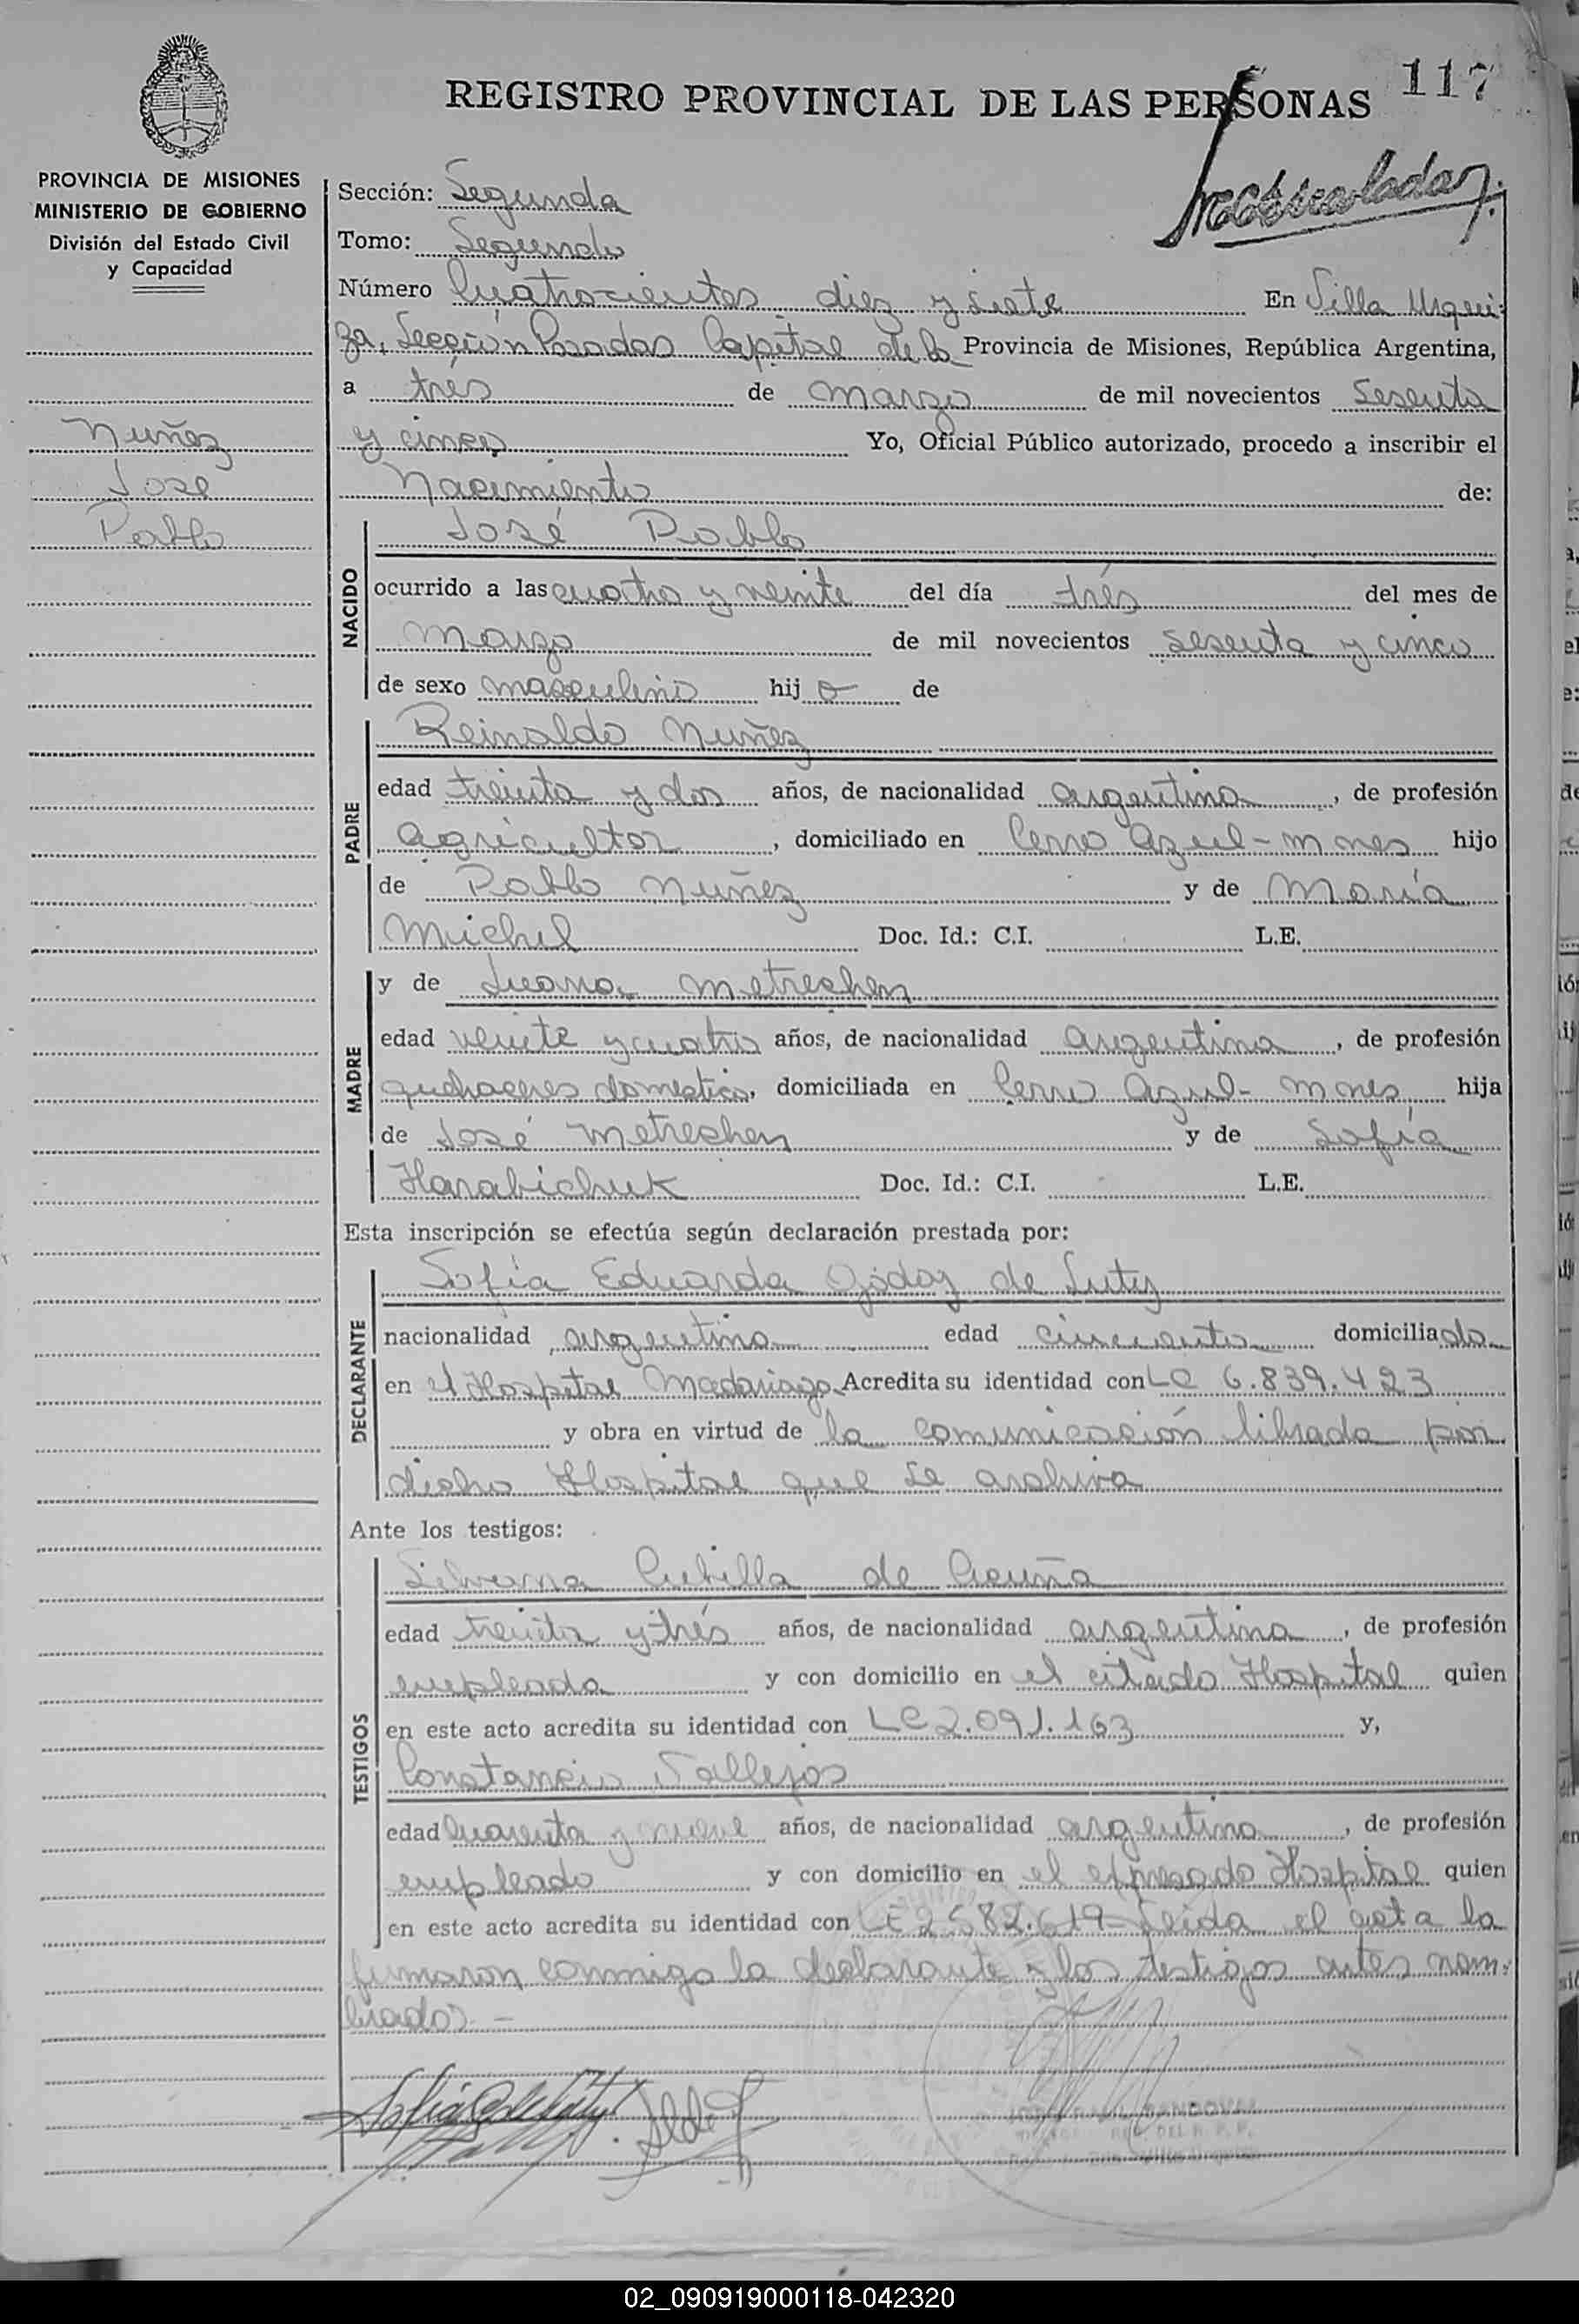 117
REGISTRO PROVINCIAL DE LAS PERSONAS
PROVINCIA DE MISIONES
MINISTERIO DE GOBIERNO
División del Estado Civil
y Capacidad
Nuñez
José
Pablo
Sección: Segunda
Tomo: Segundo
Número Cuatrocientos diez y siete En Villa Urqui-
za, Sección Posadas Capital de la Provincia de Misiones, República Argentina,
a trés de marzo de mil novecientos sesenta
y cinco Yo, Oficial Público autorizado, procedo a inscribir el
Nacimiento de:
NACIDO
José Pablo
ocurrido a las cuatro y veinte del día trés del mes de
marzo de mil novecientos sesenta y cinco
de sexo masculino hijo de
PADRE
Reinaldo Nuñez
edad treinta y dos años, de nacionalidad argentina, de profesión
agricultor, domiciliado en Cerro Azul - Mnes hijo
de Pablo Nuñez y de María
Michel Doc. Id.: C.I. L.E.
MADRE
y de Juana Metreshen
edad veinte y cuatro años, de nacionalidad argentina, de profesión
quehaceres domestico, domiciliada en Cerro Azul - Mnes hija
de José Metreshen y de Sofía
Harabichuk Doc. Id.: C.I. L.E.
Esta inscripción se efectúa según declaración prestada por:
DECLARANTE
Sofia Eduarda Godoy de Luty
nacionalidad argentina edad cincuenta domiciliada
en el Hospital Madariaga Acredita su identidad con LC 6.839.423
y obra en virtud de la comunicación librada por
dicho Hospital que se archiva
Ante los testigos:
TESTIGOS
Silvana Cubilla de Acuña
edad treinta y trés años, de nacionalidad argentina, de profesión
empleada y con domicilio en el citado Hospital quien
en este acto acredita su identidad con LC 2.091.163 y,
Constancio Vallejos
edad cuarenta y nueve años, de nacionalidad argentina, de profesión
empleado y con domicilio en el expresado Hospital quien
en este acto acredita su identidad con LE 2582.619 - Leida el acta la
firmaron conmigo la declarante y los testigos antes nom-
brados -
02_090919000118-042320